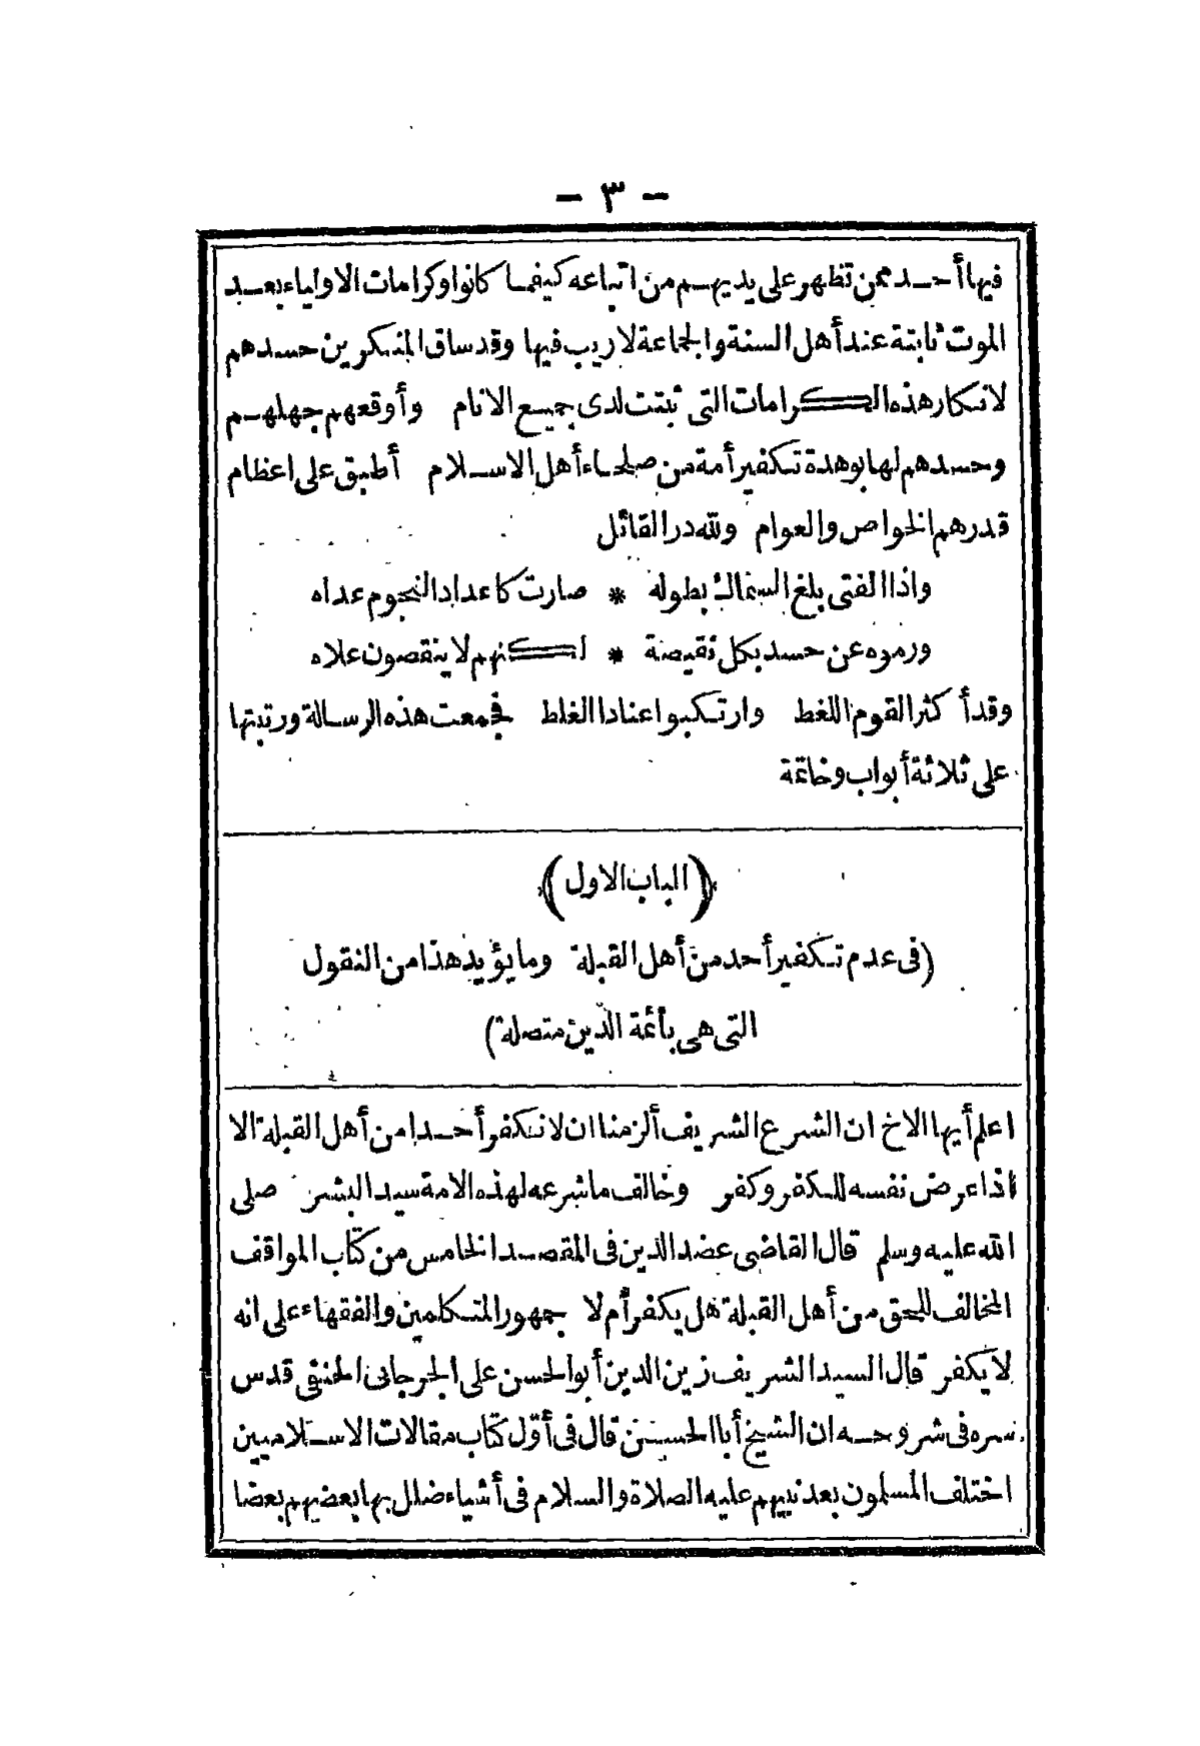 - ٣ -
فيها أحد ممن تظهر على يديهم من اتباعه كيفما كانوا وكرامات الاولياء بعد
الموت ثابتة عند أهل السنة والجماعة لا ريب فيها وقد ساق المنكرين حسدهم
لانكار هذه الكرامات التى ثبتت لدى جميع الانام وأوقعهم جهلهم
وحسدهم لها بوهدة تكفير أمة من صلحاء أهل الاسلام أطبق على اعظام
قدرهم الخواص والعوام ولله در القائل
واذا الفتى بلغ السماك بطوله * صارت كاعداد النجوم عداه
ورموه عن حسد بكل نقيصة * لكنهم لا ينقصون علاه
وقد أكثر القوم اللغط وارتكبوا عنادا الغلط فجمعت هذه الرسالة ورتبتها
على ثلاثة أبواب وخاتمة
(الباب الاول)
(فى عدم تكفير أحد من أهل القبلة وما يؤيد هذا من النقول
التى هى بأئمة الدين متصلة)
اعلم أيها الاخ ان الشرع الشريف ألزمنا ان لا نكفر أحدا من أهل القبلة الا
اذا عرض نفسه للكفر وكفر وخالف ما شرعه لهذه الامة سيد البشر صلى
الله عليه وسلم قال القاضى عضد الدين فى المقصد الخامس من كتاب المواقف
المخالف للحق من أهل القبلة هل يكفر أم لا جمهور المتكلمين والفقهاء على انه
لا يكفر قال السيد الشريف زين الدين أبو الحسن على الجرجانى الحنفى قدس
سره فى شروحه ان الشيخ أبا الحسن قال فى أوّل كتاب مقالات الاسلاميين
اختلف المسلمون بعد نبيهم عليه الصلاة والسلام فى أشياء ضلل بها بعضهم بعضا